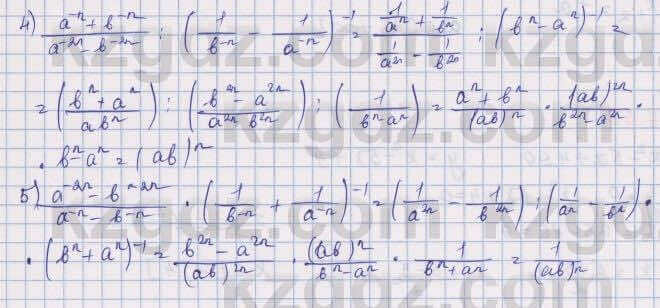 4) (a^-n + b^-n)/(a^-2n - b^-2n) : (1/b^-n - 1/a^-n)^-1 = (1/a^n + 1/b^n)/(1/a^2n - 1/b^2n) : (b^n - a^n)^-1 =
= ((b^n + a^n)/(ab^n)) : ((b^2n - a^2n)/(a^2n b^2n)) : (1/(b^n a^n)) = (a^n + b^n)/((ab)^n) · (ab)^2n/(b^2n - a^2n) ·
· b^n - a^n = (ab)^n
5) (a^-2n - b^-2n)/(a^-n - b^-n) · (1/b^-n + 1/a^-n)^-1 = (1/a^2n - 1/b^2n) : (1/a^n - 1/b^n) ·
· (b^n + a^n)^-1 = (b^2n - a^2n)/((ab)^2n) · (ab)^n/(b^n - a^n) · 1/(b^n + a^n) = 1/(ab)^n
kzgdz.com